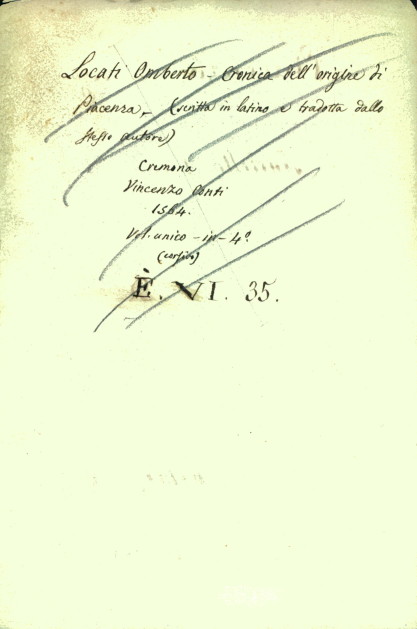 Locati Omberto - Cronica dell'origine di
Piacenza - (scritta in latino e tradotta dallo
stesso autore)
Cremona
Vincenzo Conti
1564.
Vol. unico - in - 4º.
(corsivo)
È. VI. 35.